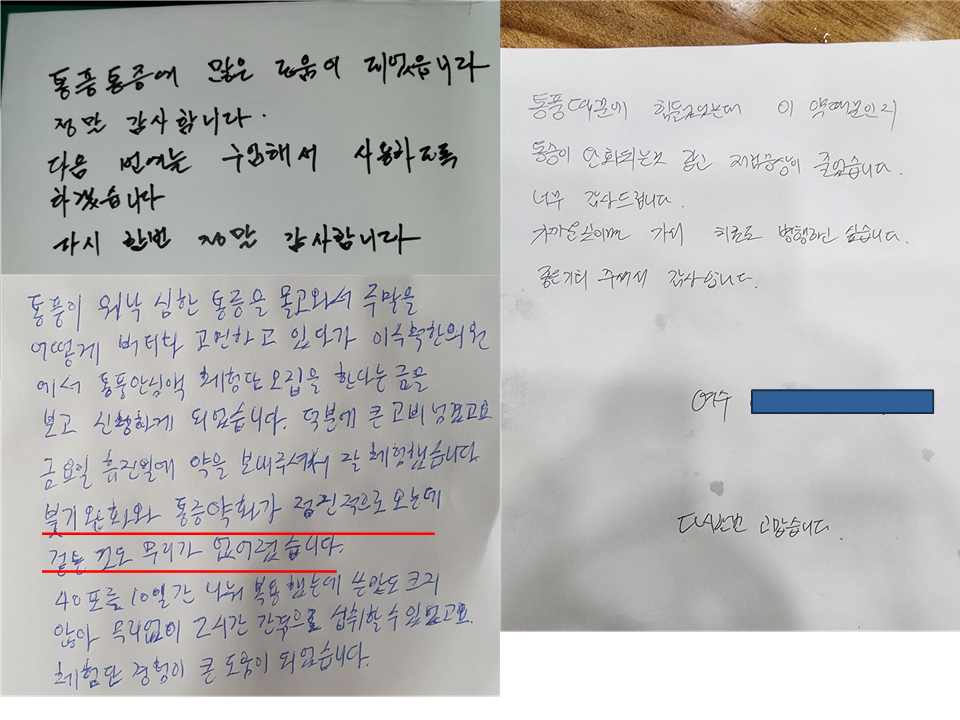 통풍통증에 많은 도움이 되었습니다
정말 감사합니다.
다음 번에는 구입해서 사용하도록
하겠습니다
다시 한번 정말 감사합니다
통풍이 워낙 심한 통증을 몰고와서 주말을
어떻게 버티나 고민하고 있다가
에서 통풍안심액 체험단 모집을 한다는 글을
보고 신청하게 되었습니다. 덕분에 큰 고비 넘겼고요
금요일 휴진일에 약을 보내주셔서 잘 체험했습니다
붓기 완화와 통증약화가 점진적으로 오는데
걷는 것도 무리가 없어졌습니다.
40포를 10일간 나눠 복용했는데 쓴맛도 크지
않아 무리없이 2시간 간격으로 섭취할 수 있었고요.
체험단 경험이 큰 도움이 되었습니다.
통풍 때문에 힘들었는데 이 약때문인지
통증이 완화되는것 같고 증상이 줄었습니다.
너무 감사드립니다.
가서 치료도 병행하고 싶습니다.
좋은기회 주셔서 감사합니다.
여수
다시한번 고맙습니다.